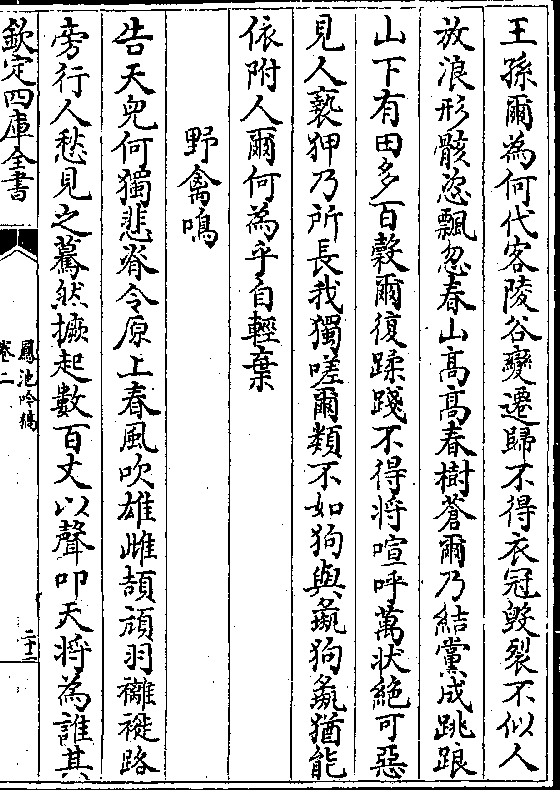 王孫爾為何代客陵谷變遷歸不得衣冠毀裂不似人
放浪形骸忽飄忽春山高高春樹蒼爾乃結黨成跳踉
山下有田多百穀爾復蹂踐不得將喧呼萬状絶可惡
見人褻狎乃所長我獨嗟爾類不如狗與彘狗彘猶能
依附人爾何為乎自輕棄
野禽鳴
告天兒何獨悲脊令原上春風吹雄雌頡頏羽襳褷路
旁行人愁見之驀然撅起數百丈以聲叩天將為誰其
欽定四庫全書
鳳池吟稿
卷二
二十二